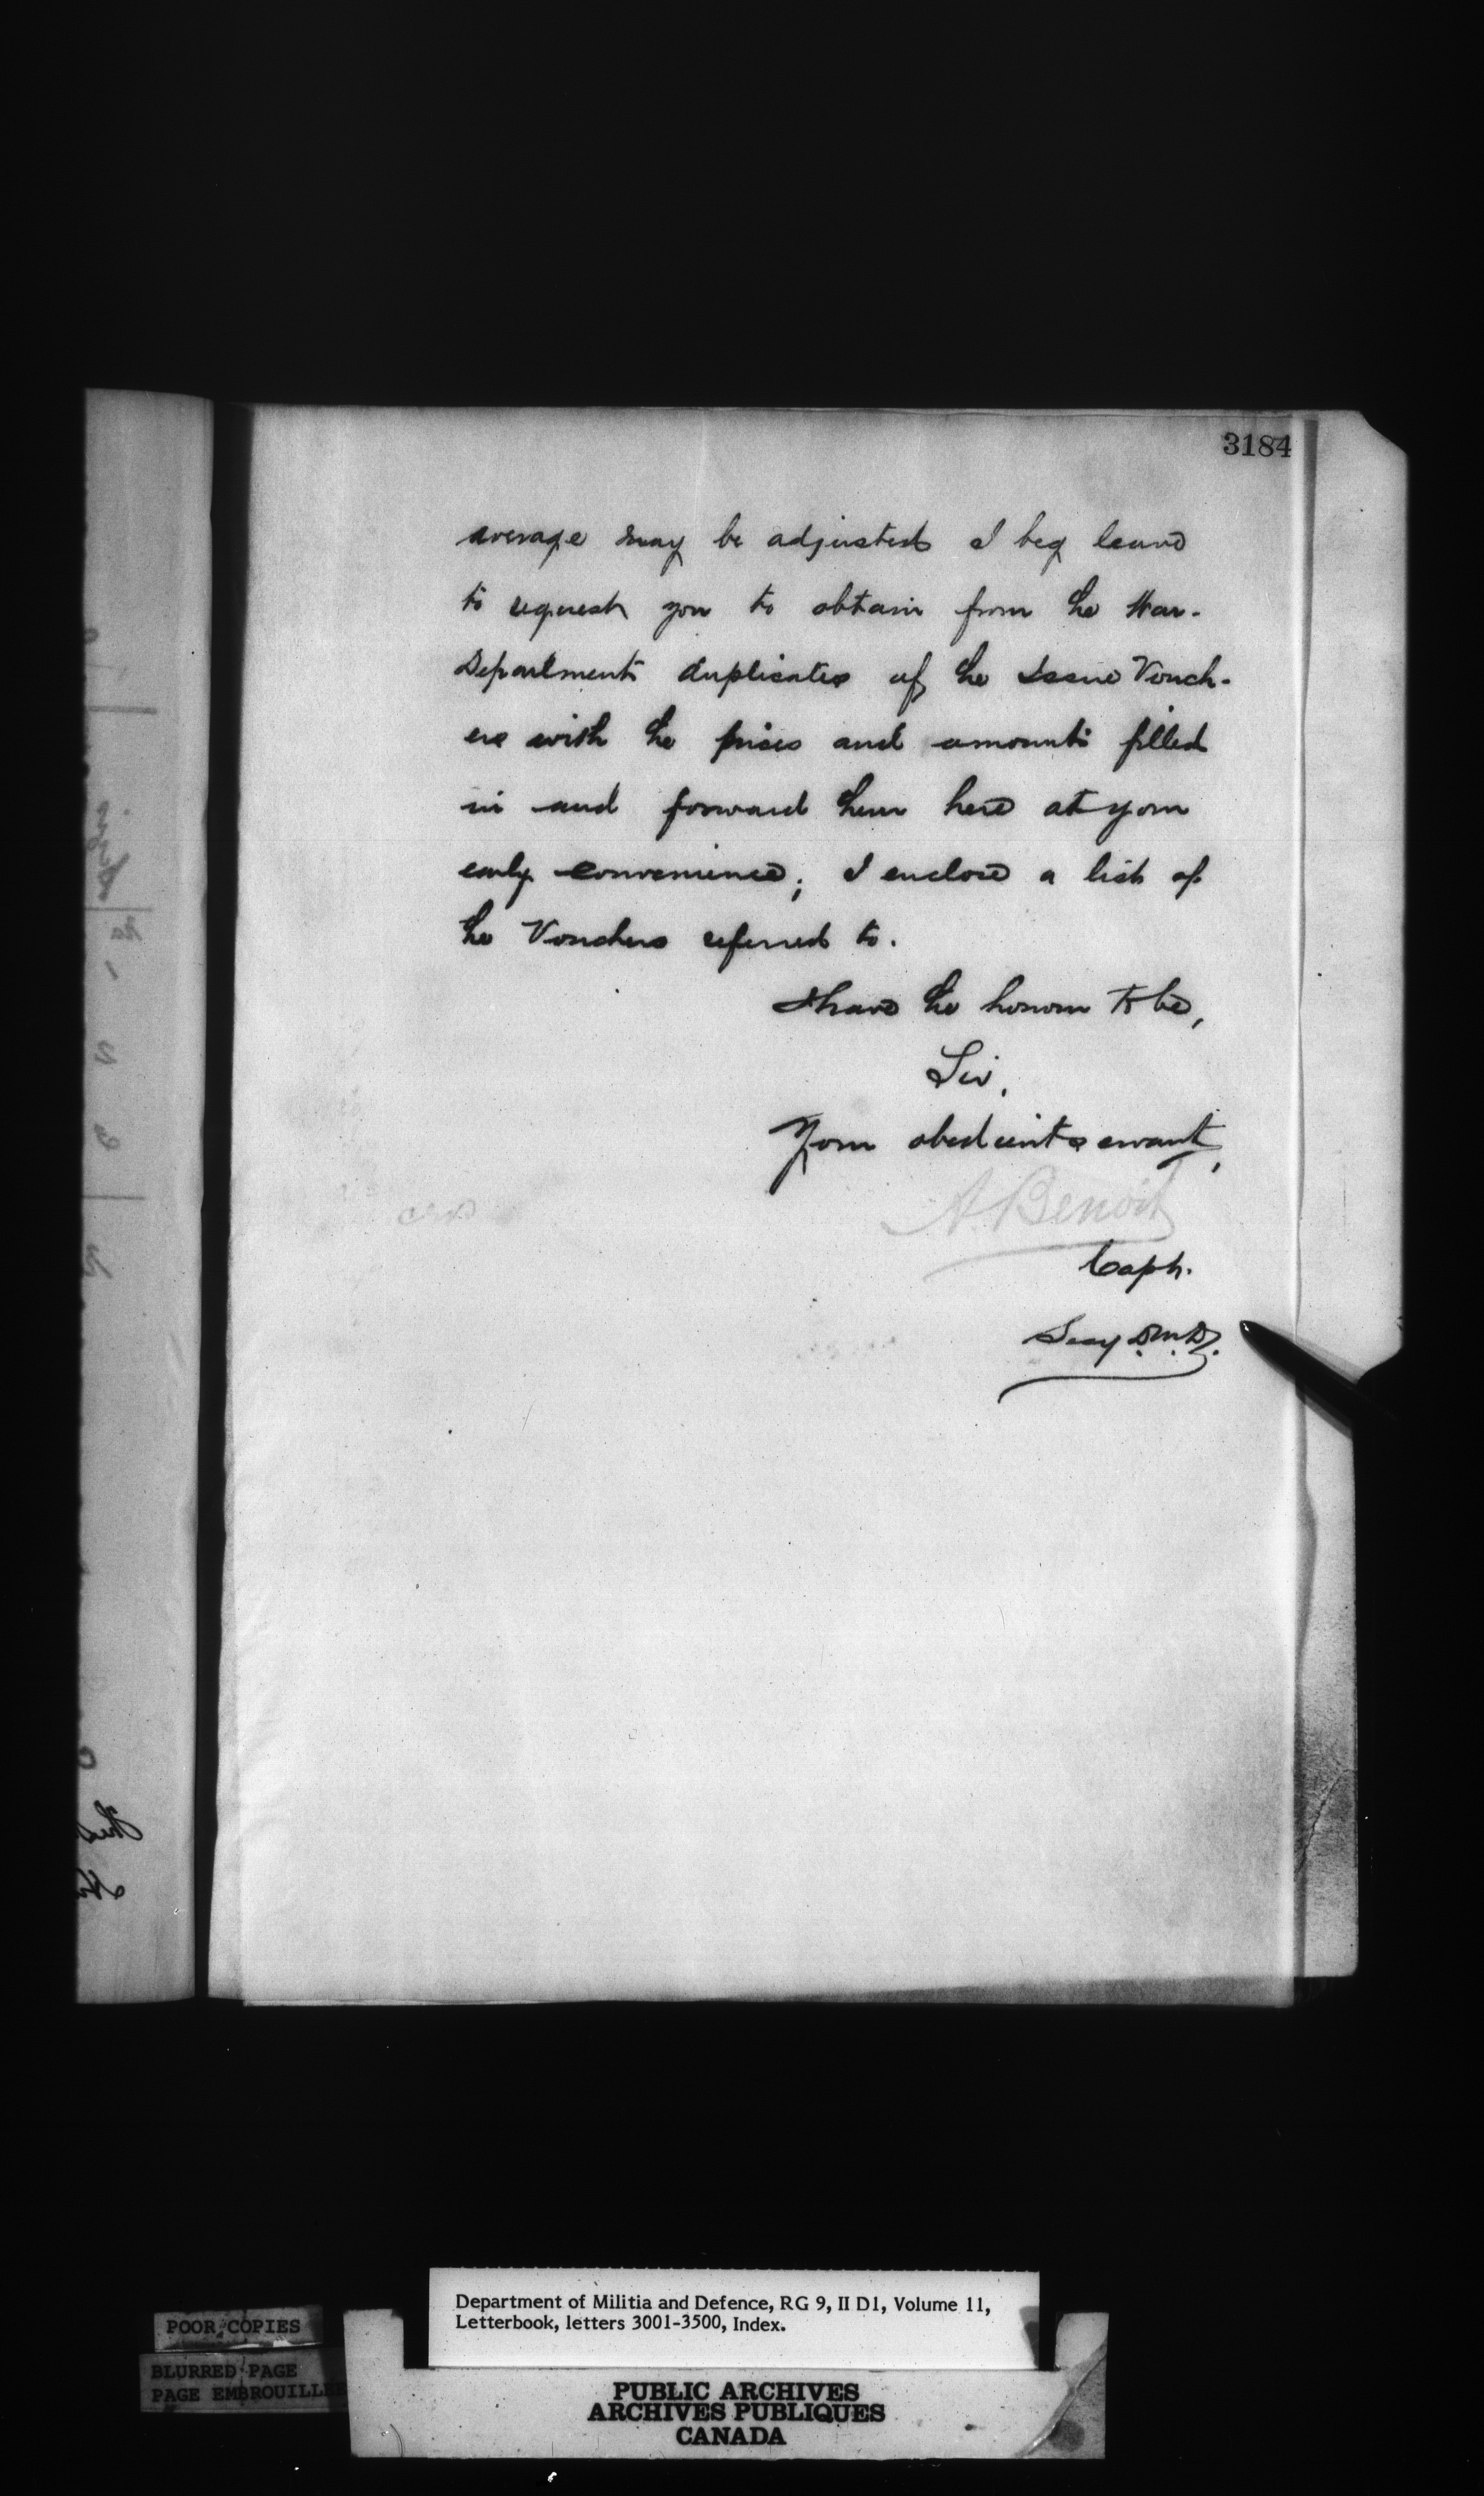 3184
average may be adjusted I beg leave
to request you to obtain from the War-
Department duplicates of the Issue Vouch-
ers with the prices and amounts filled
in and forward them here at your
early convenience; I enclose a list of
the Vouchers referred to.
I have the honour to be,
Sir,
Your obedient servant,
A. Benoit
Capt.
Secy D.M.D.
Department of Militia and Defence, RG 9, II D1, Volume 11,
Letterbook, letters 3001-3500, Index.
POOR COPIES
BLURRED PAGE
PAGE EMBROUILLE
PUBLIC ARCHIVES
ARCHIVES PUBLIQUES
CANADA